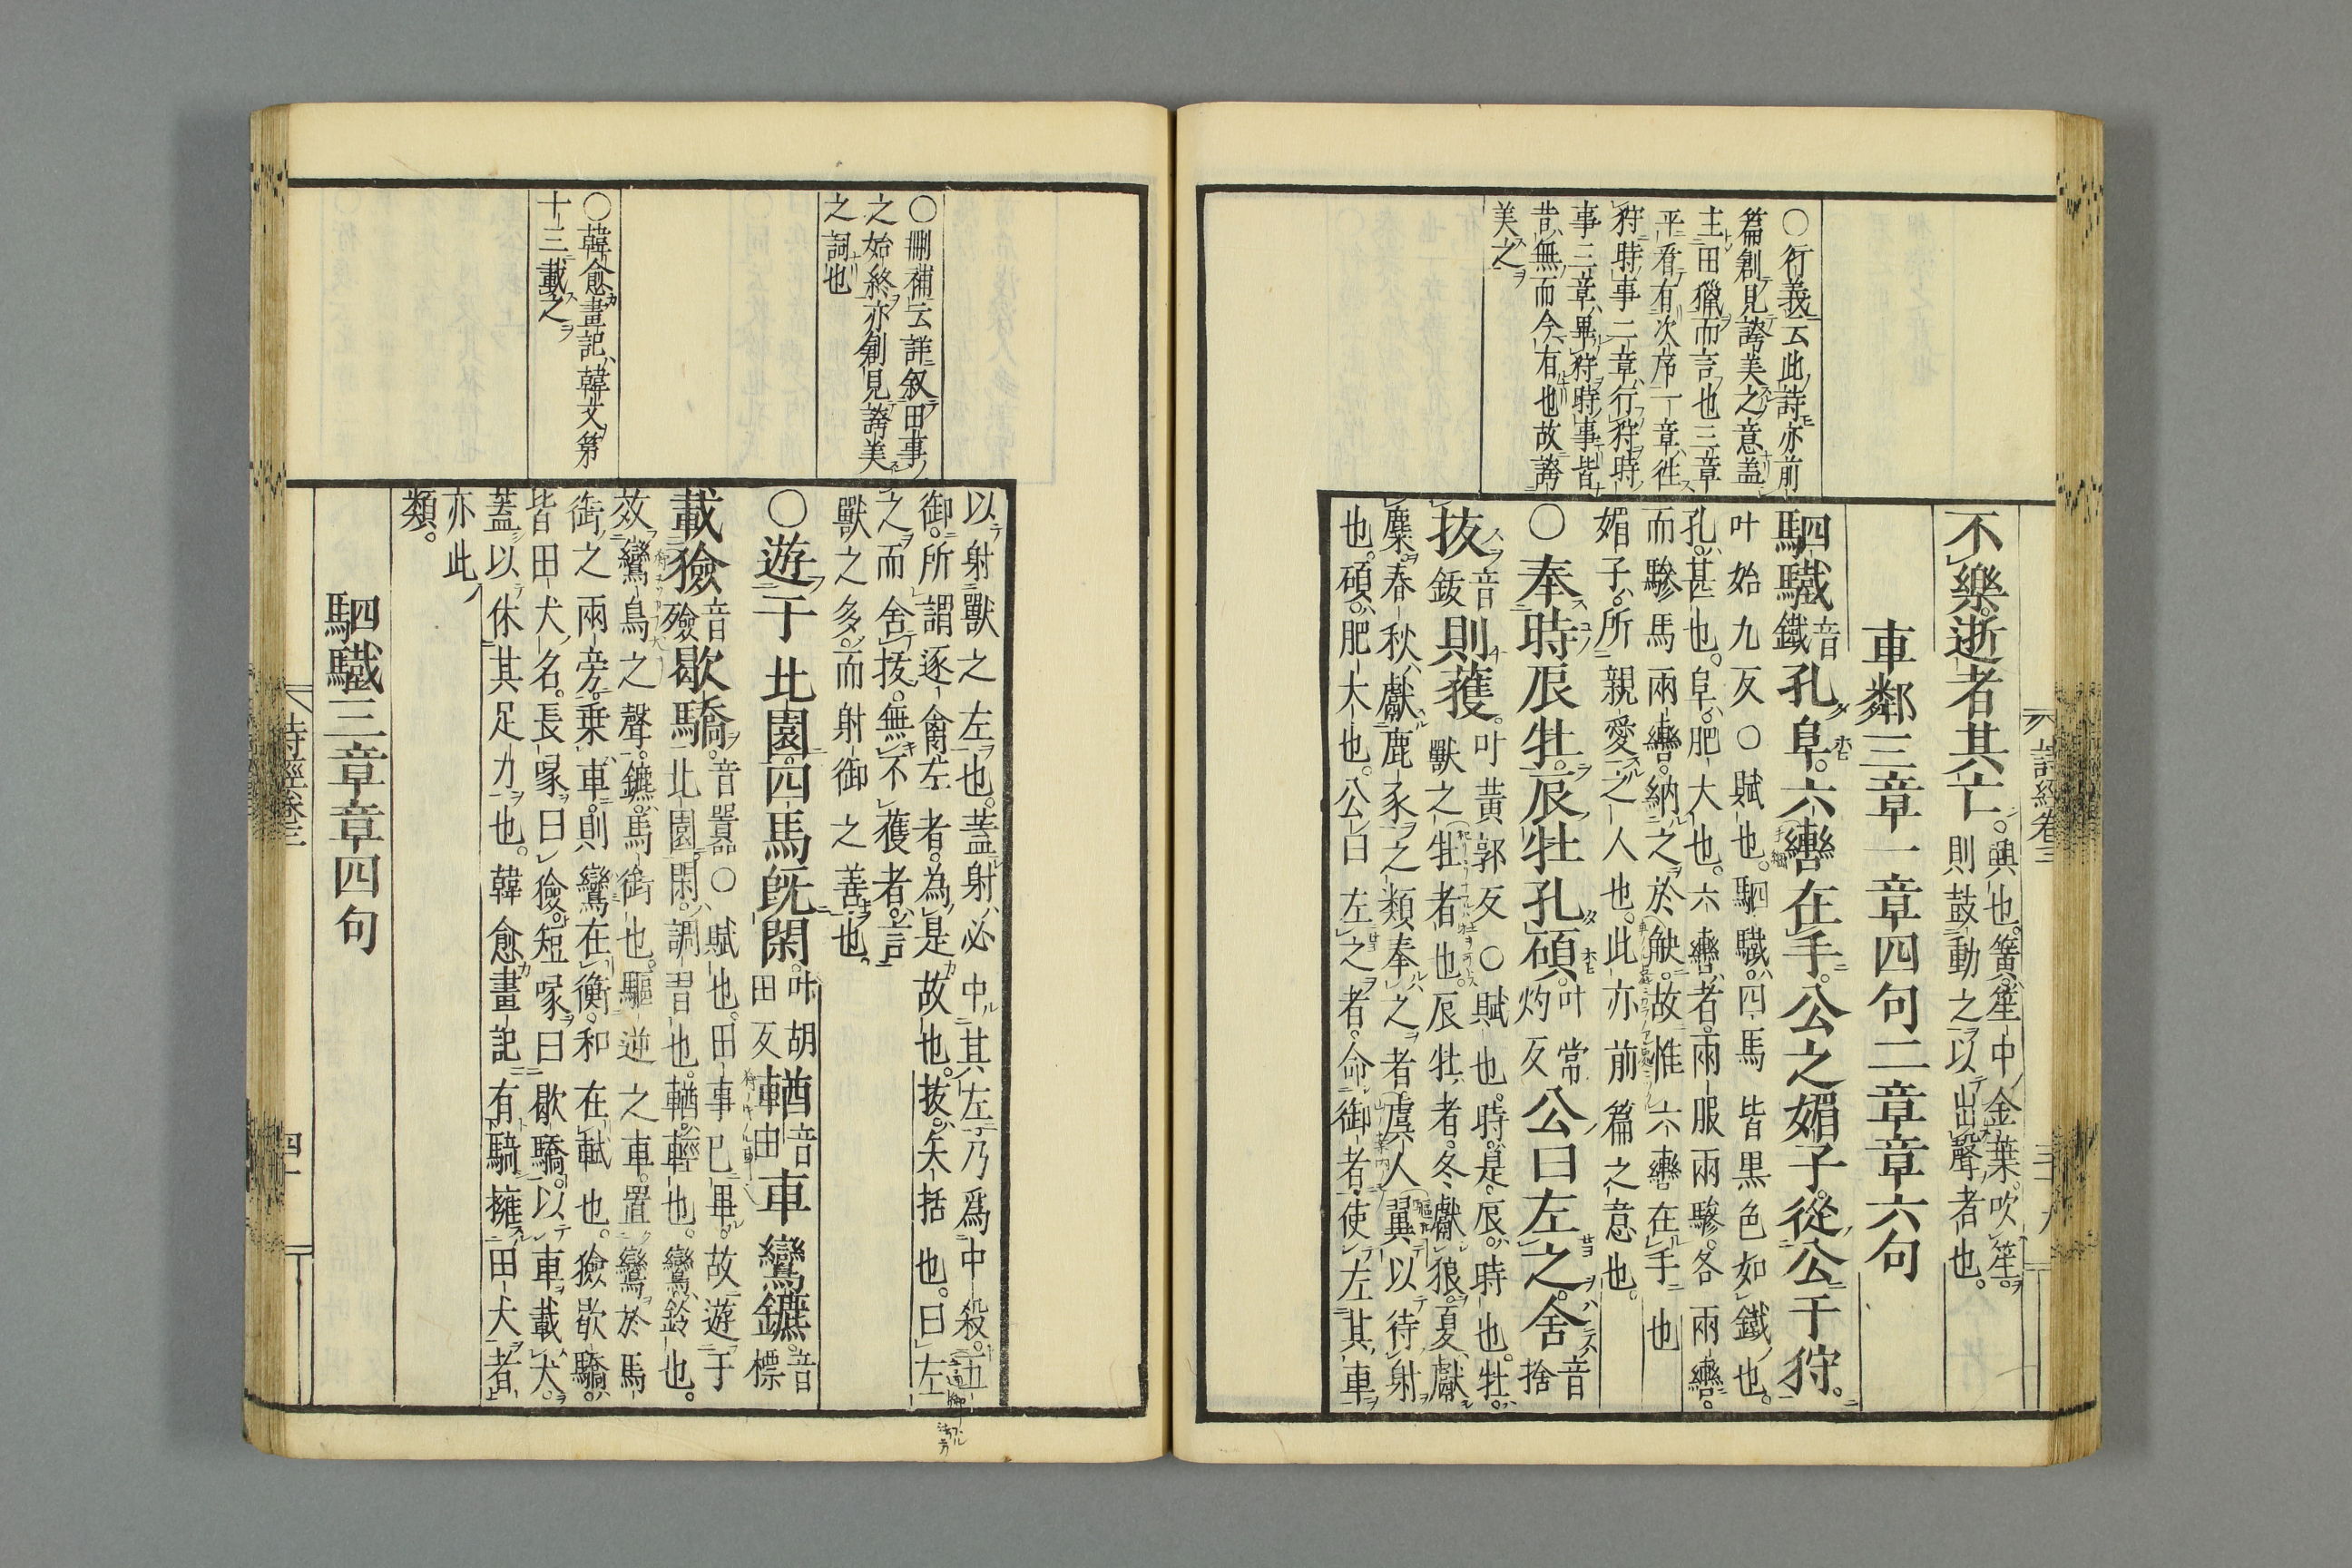 詩經卷三
三十九
○行義云此詩亦前
篇創見誇美之意蓋
主田獵而言也三章
平看有次序一章往
狩時事二章行狩時
事三章畢狩時事皆
昔無而今有也故誇
美之
不樂逝者其亡
興也。簧。笙中金葉。吹笙。
則鼓動之以出聲者也。
車鄰三章一章四句二章章六句
駟驖
音
鐵
孔阜。六轡在手。公之媚子。從公于狩。
叶始九反○賦也。駟驖。四馬皆黒色如鐵也。
孔。甚也。阜。肥大也。六轡者。兩服兩驂。各兩轡。
而驂馬兩轡。納之於觖。故惟六轡在手也
媚子。所親愛之人也。此亦前篇之意也。
○奉時辰牡。辰牡孔碩。
叶常
灼反
公曰左之。舍
音
捨
拔
音
鈸
則獲。
叶黃郭反○賦也。時。是。辰。時也。牡。
獸之牡者也。辰牡者。冬獻狼。夏獻
麋。春秋獻鹿豕之類。奉之者。虞人翼以待射
也。碩。肥大也。公曰左之者。命御者。使左其車
○刪補云詳叙田事
之始終亦創見誇美
之詞也
○韓愈畫記韓文第
十三載之
以射獸之左也。蓋射必中其左乃爲中殺。五
御。所謂逐禽左者。為是故也。拔。矢括也。曰左
之而舍拔。無不獲者。言
獸之多。而射御之善也。
○遊于北園。四馬旣閑。
叶胡
田反
輶
音
由
車鸞鑣。
音
標
載獫
音
殮
歇驕。
音囂○賦也。田事已畢。故遊于
北園。閑。調習也。輶。輕也。鸞。鈴也。
效鸞鳥之聲。鑣。馬銜也。驅逆之車。置鸞於馬
銜之兩旁。乗車。則鸞在衡。和在軾也。獫歇驕。
皆田犬名。長喙曰獫。短喙曰歇驕。以車載犬。
蓋以休其足力也。韓愈畫記有騎擁田犬者。
亦此
類。
駟驖三章章四句
詩經卷三
四十